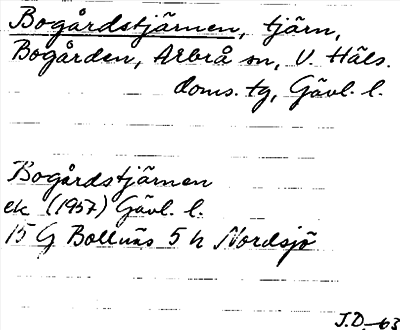 Bogårdstjärnen, tjärn,
Bogården, Arbrå sn, V. Häls.
doms. tg, Gävl. l.
Bogårdstjärnen
ek (1957) Gävl. l.
15 G Bollnäs 5 h Nordsjö
J.D. -63